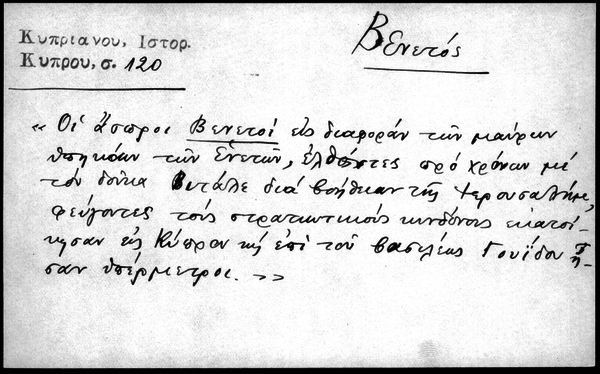 Κυπριανου, Ιστορ.
Κυπρου, σ. 120
Βενετός
« Οἱ ἄσπροι Βενετοί εἰς διαφοράν τῶν μαύρων
ὑπηκόων τῶν Ἐνετῶν, ἐλθόντες πρό χρόνων μέ
τόν δοῦκα Βιτάλε διά βοήθειαν τῆς Ἱερουσαλήμ,
φεύγοντες τούς στρατιωτικούς κινδύνους εκατοί-
κησαν εἰς Κύπρον κ̀ ἐπί τοῦ βασιλέως Γουΐδου ἦ-
σαν ὑπέρμετροι. »